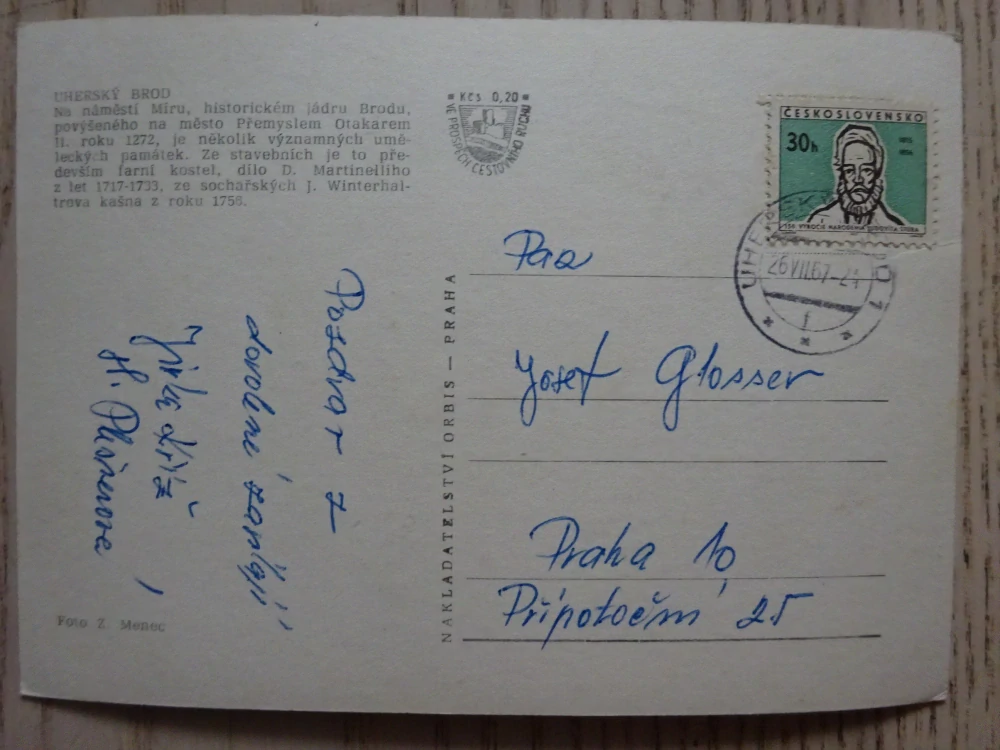 UHERSKÝ BROD
Na náměstí Míru, historickém jádru Brodu,
povýšeného na město Přemyslem Otakarem
II. roku 1272, je několik významných umě-
leckých památek. Ze stavebních je to pře-
devším farní kostel, dílo D. Martinelliho
z let 1717-1733, ze sochařských J. Winterhal-
trova kašna z roku 1758.
Kčs 0,20
VE PROSPĚCH CESTOVNÍHO RUCHU
ČESKOSLOVENSKO
30h
150. VÝROČIE NARODENIA ĽUDOVÍTA ŠTÚRA
UHERSKÝ BROD 1
26.VII.67-21
Pozdrav z
dovolené zasílají
Jirka Kříž
H.
NAKLADATELSTVÍ ORBIS — PRAHA
Pan
Josef Glosser
Praha 10
Přípotoční 25
Foto Z. Menec